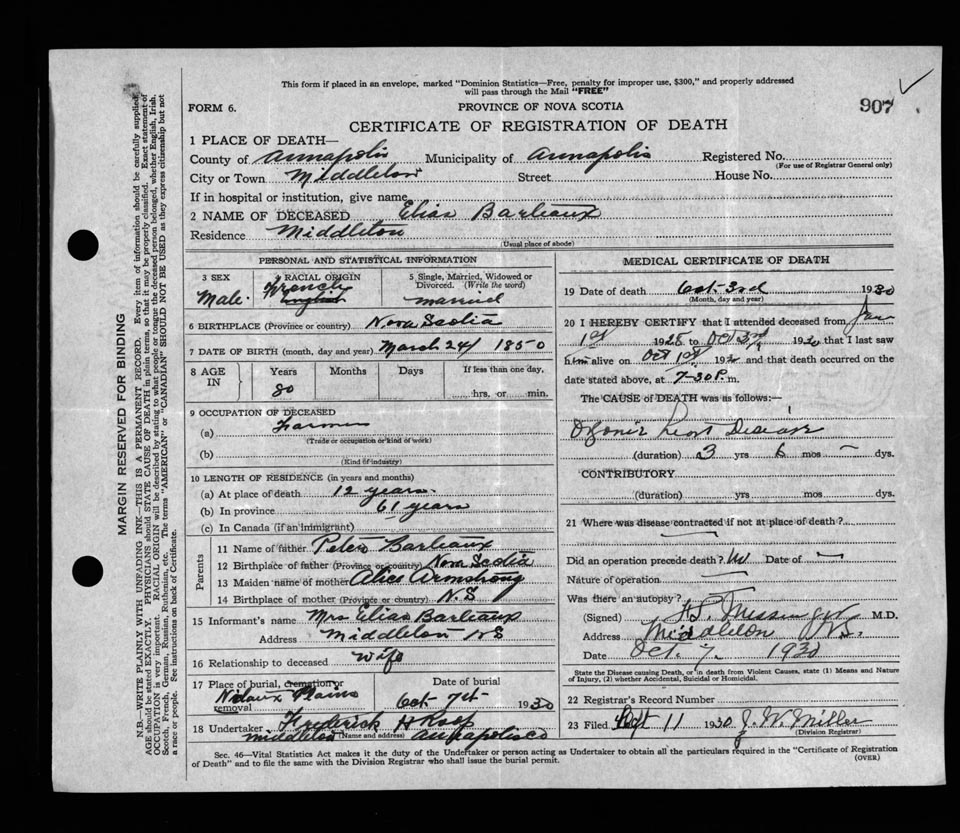 This form if placed in an envelope, marked "Dominion Statistics—Free, penalty for improper use, $300," and properly addressed
will pass through the Mail "FREE"
FORM 6.
PROVINCE OF NOVA SCOTIA
907
CERTIFICATE OF REGISTRATION OF DEATH
1 PLACE OF DEATH—
County of Annapolis Municipality of Annapolis Registered No.
(For use of Registrar General only)
City or Town Middleton Street House No.
If in hospital or institution, give name
2 NAME OF DECEASED Elias Barteaux
Residence Middleton
(Usual place of abode)
PERSONAL AND STATISTICAL INFORMATION
3 SEX
Male.
4 RACIAL ORIGIN
French
English
5 Single, Married, Widowed or
Divorced. (Write the word)
married
6 BIRTHPLACE (Province or country) Nova Scotia
7 DATE OF BIRTH (month, day and year) March 24/ 1850
8 AGE IN
Years Months Days If less than one day,
80 hrs. or min.
9 OCCUPATION OF DECEASED
(a) Farmer
(Trade or occupation or kind of work)
(b)
(Kind of industry)
10 LENGTH OF RESIDENCE (in years and months)
(a) At place of death 12 years.
(b) In province 61 years
(c) In Canada (if an immigrant)
Parents
11 Name of father Peter Barteaux
12 Birthplace of father (Province or country) Nova Scotia
13 Maiden name of mother Alice Armstrong
14 Birthplace of mother (Province or country) N.S
15 Informant's name Mrs Elias Barteaux
Address Middleton NS
16 Relationship to deceased wife
17 Place of burial, cremation or
removal Nictaux Plains
Date of burial
Oct 7th 1930
18 Undertaker Frederick H Roop
(Name and address)
Middleton Annapolis Co
MEDICAL CERTIFICATE OF DEATH
19 Date of death Oct-3rd 1930
(Month, day and year)
20 I HEREBY CERTIFY that I attended deceased from Jan
1st 1928 to Oct 3rd 1930 that I last saw
him alive on Oct 1st 1930 and that death occurred on the
date stated above, at 7-30 P. m.
The CAUSE of DEATH was as follows:—
Chronic Heart Disease
(duration) 3 yrs 6 mos — dys.
CONTRIBUTORY
(duration) yrs mos dys.
21 Where was disease contracted if not at place of death?
Did an operation precede death? No Date of —
Nature of operation
Was there an autopsy?
(Signed) Messinger M.D.
Address Middleton N.S.
Date Oct. 7 1930
State the Disease causing Death, or in death from Violent Causes, state (1) Means and Nature
of Injury, (2) whether Accidental, Suicidal or Homicidal.
22 Registrar's Record Number
23 Filed 11 1930 J. W. Miller
(Division Registrar)
Sec. 46—Vital Statistics Act makes it the duty of the Undertaker or person acting as Undertaker to obtain all the particulars required in the "Certificate of Registration
of Death" and to file the same with the Division Registrar who shall issue the burial permit.
(OVER)
MARGIN RESERVED FOR BINDING
N.B.—WRITE PLAINLY WITH UNFADING INK—THIS IS A PERMANENT RECORD. Every item of information should be carefully supplied.
AGE should be stated EXACTLY. PHYSICIANS should STATE CAUSE OF DEATH in plain terms, so that it may be properly classified. Exact statement of
OCCUPATION is very important. RACIAL ORIGIN will be described by stating to what people or tongue the deceased person belonged, whether English, Irish,
Scotch, French, German, Russian, Ruthenian, etc. The terms "AMERICAN" or "CANADIAN" SHOULD NOT BE USED as they express citizenship but not
a race or people. See instructions on back of Certificate.